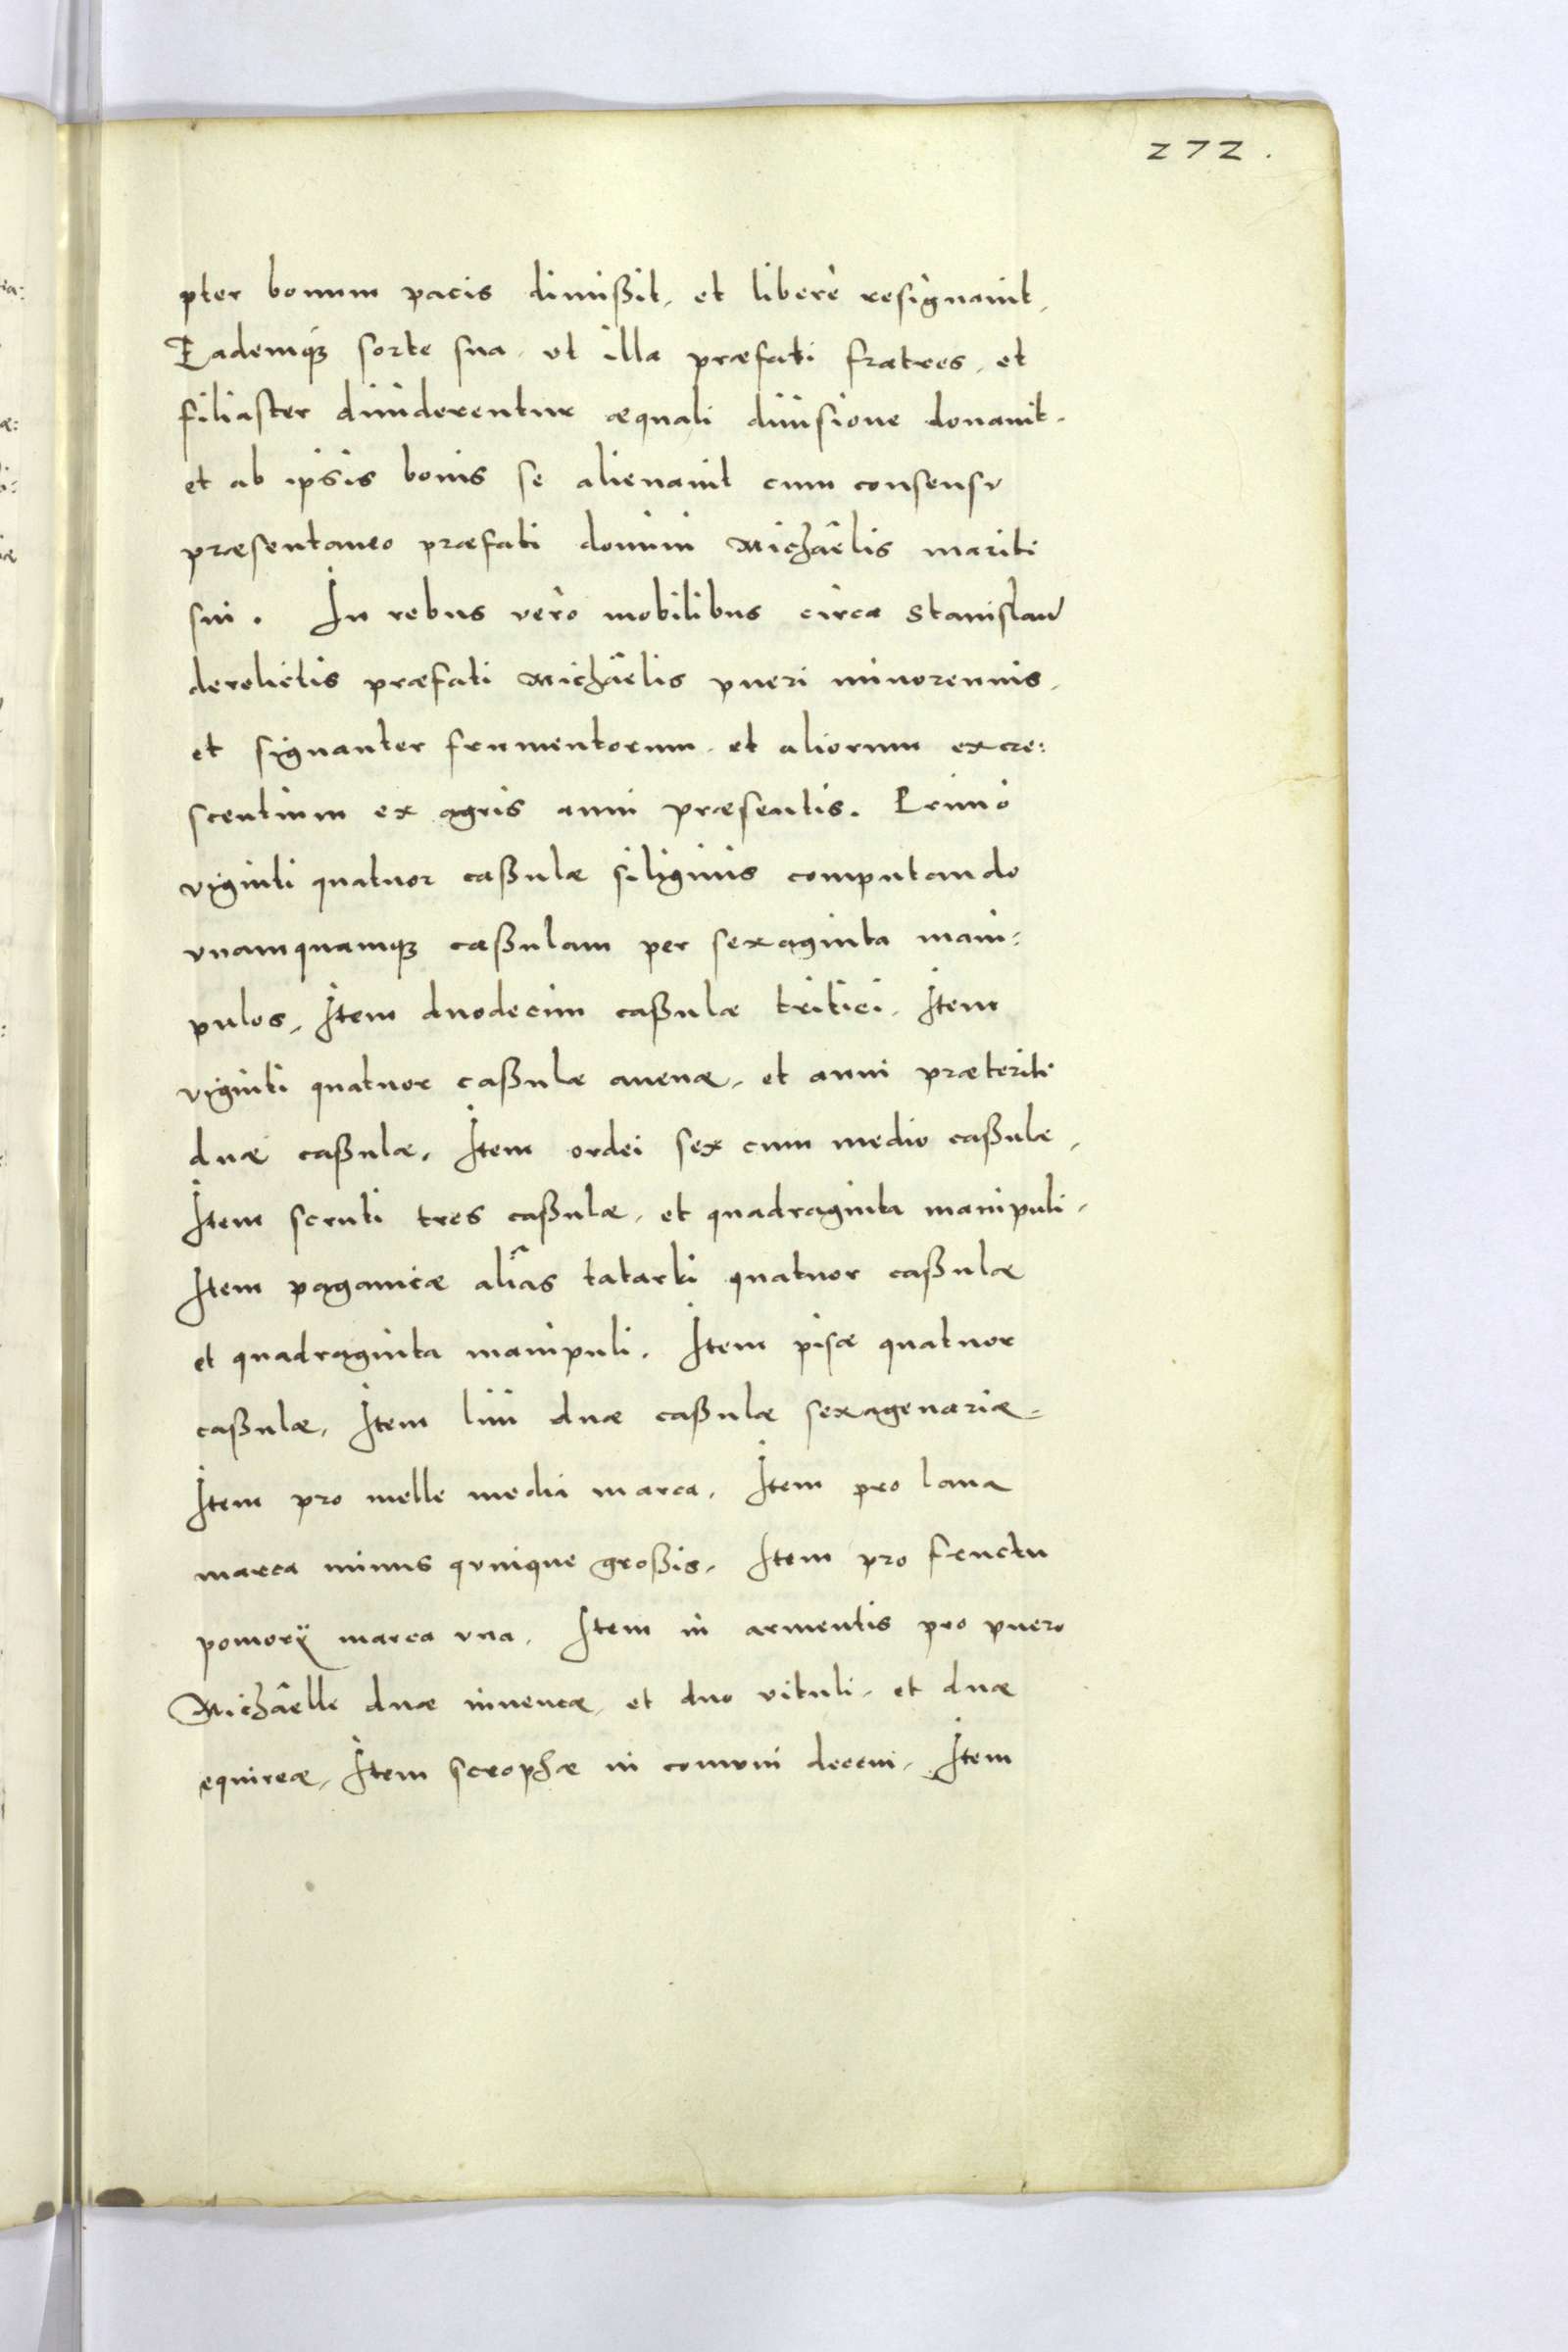 272.
pter bonum pacis dimißit, et liberè resignauit,
Eademq́ꝫ sorte sua, vt illa præfati fratres, et
filiaster diuiderentur æquali diuisione donauit,
et ab ipsis bonis se alienauit cum consensu
præsentaneo præfati domini Michâelis mariti
sui. In rebus verò mobilibus circa Stanislaũ
derelictis præfati Michâelis pueri minorennis,
et signanter frumentorum, et aliorum excre:
scentium ex agris anni præsentis. Primò
viginti quatuor caßulæ siliginis computando
vnamquamqꝫ caßulam per sexaginta mani:
pulos, Item duodecim caßulæ tritici, Item
viginti quatuor caßulæ auenæ, et anni præteriti
duæ caßulæ, Item ordei sex cum medio caßulæ,
Item scruti tres caßulæ, et quadraginta manipuli,
Item paganicæ aliâs tatarki quatuor caßulæ
et quadraginta manipuli. Item pisæ quatuor
caßulæ, Item lini duæ caßulæ sexagenariæ,
Item pro melle media marca, Item pro lana
marca minus quinque großis, Item pro fructu
pomorij marca vna, Item in armentis pro puero
Michâelle duæ iuuencæ, et duo vituli, et duæ
equireæ, Item scrophæ in comuni decem, Item